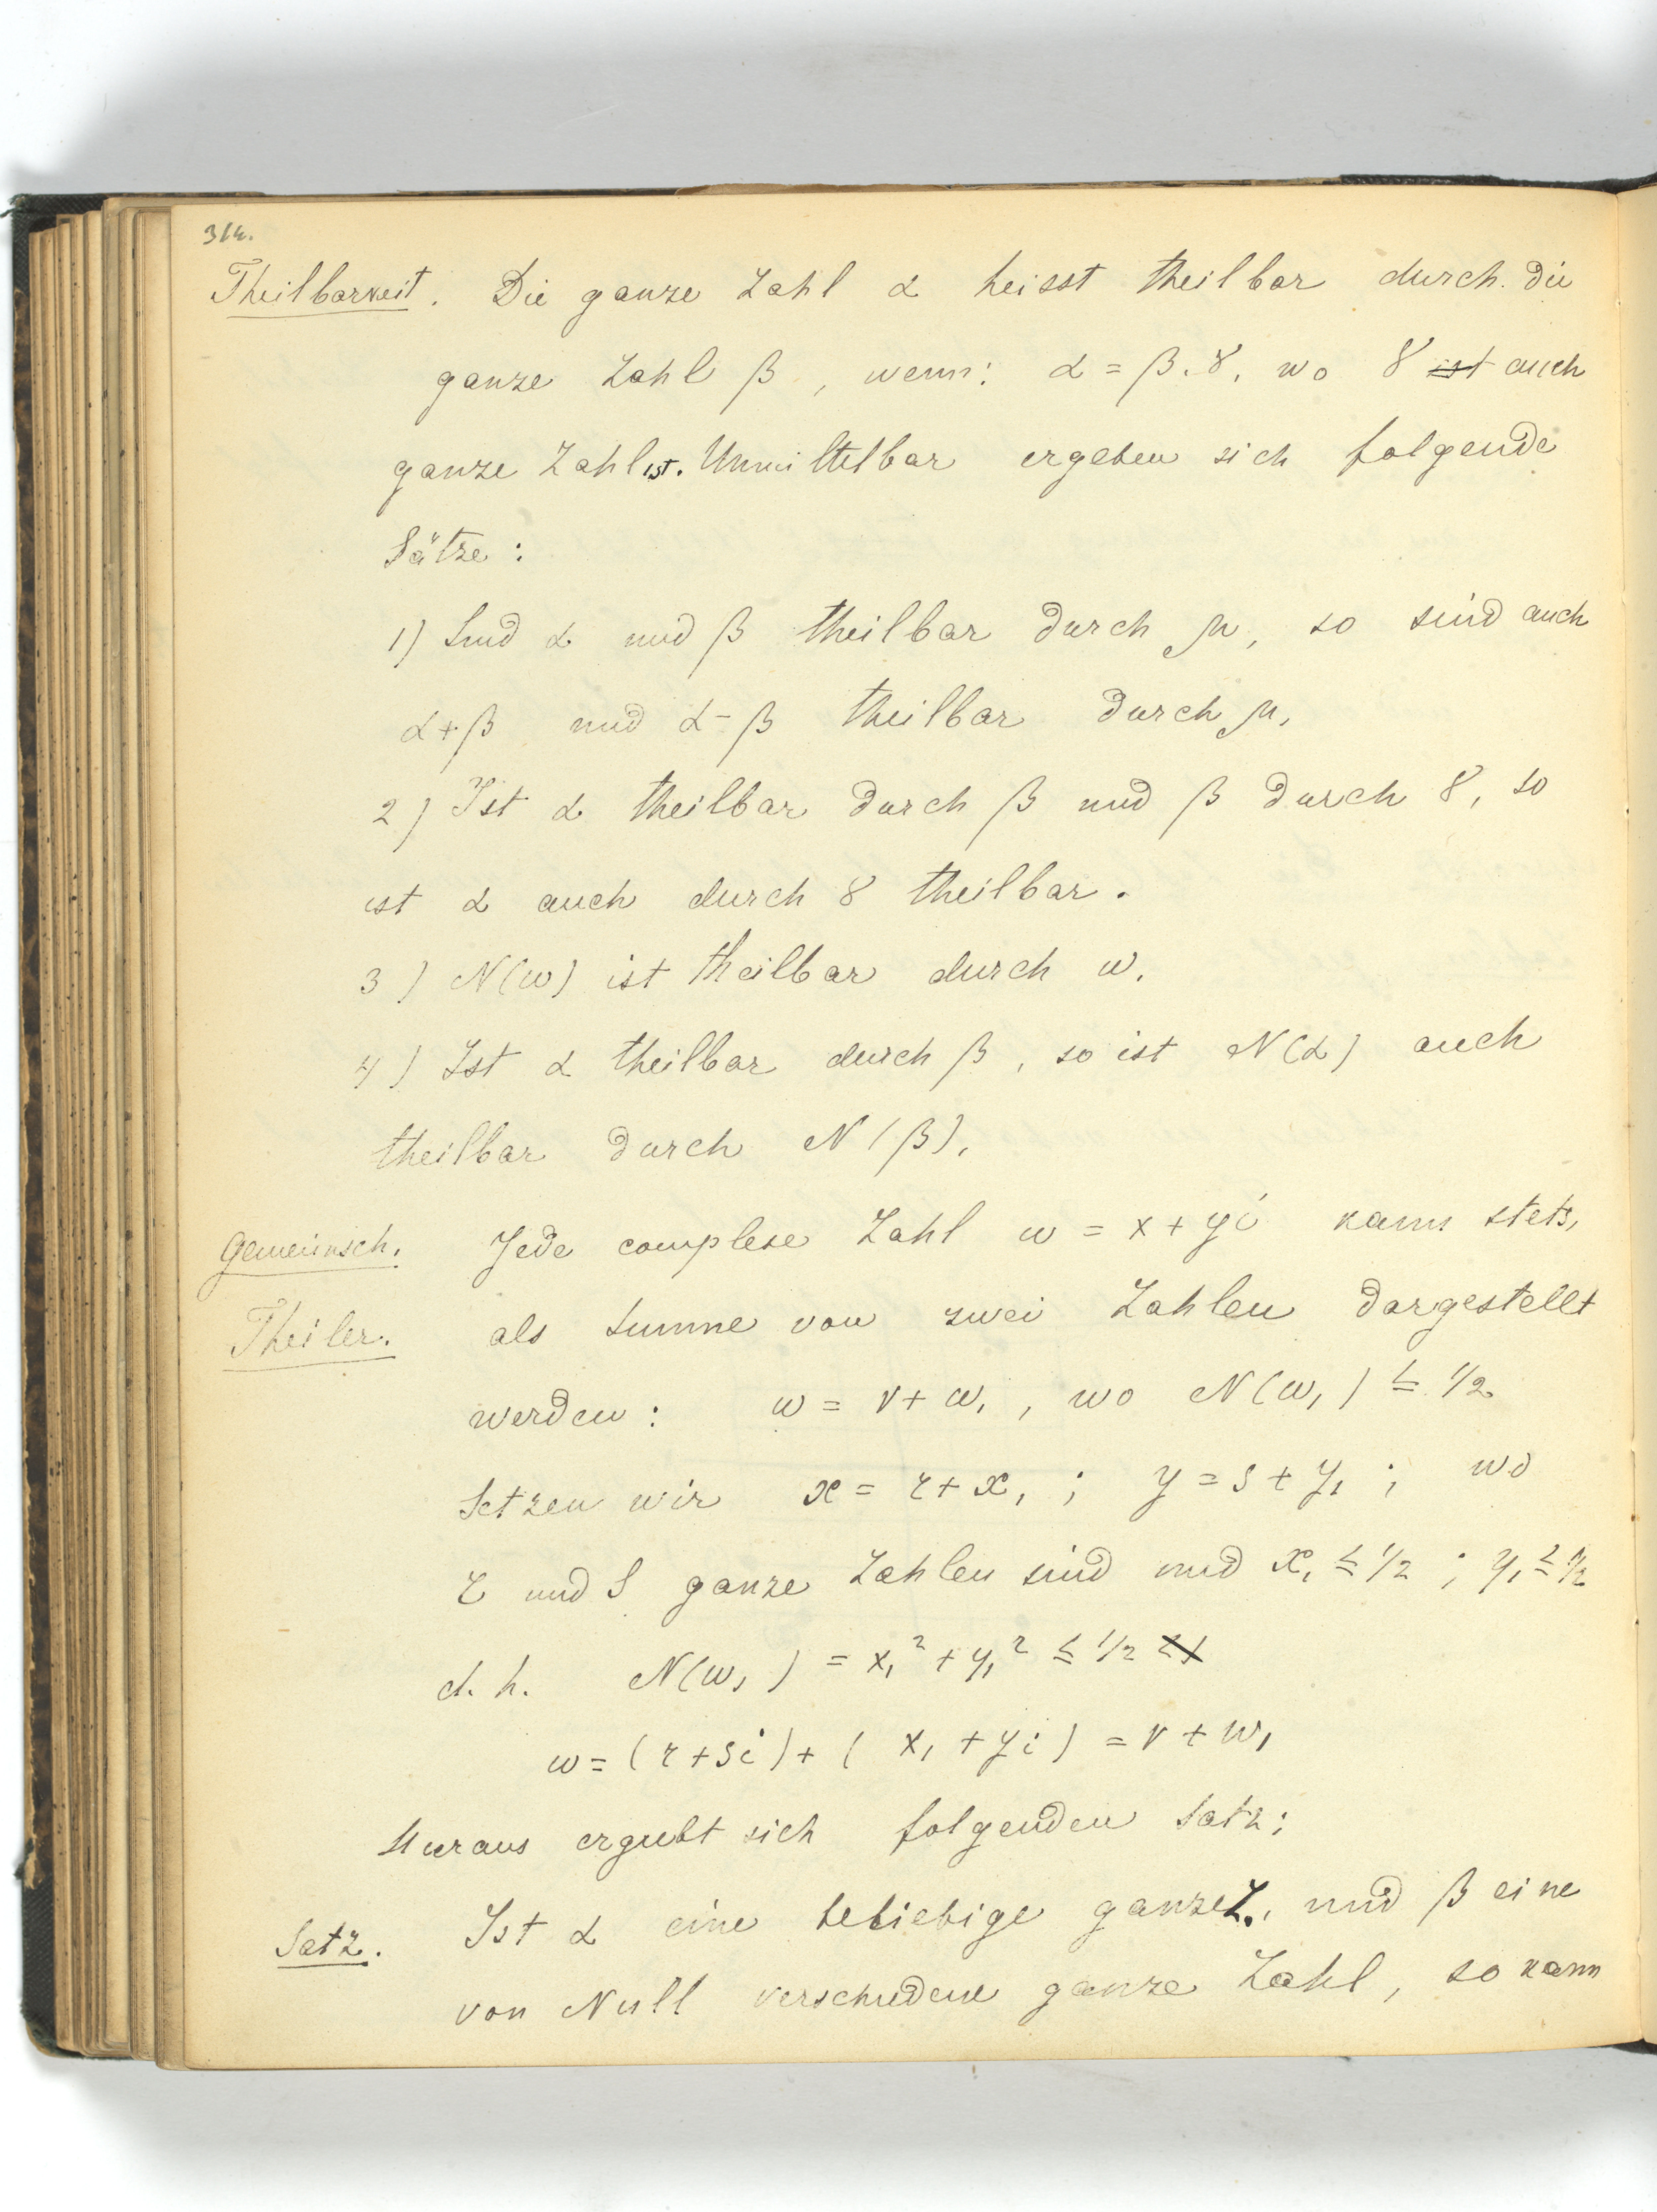 314.
Theilbarkeit. Die ganze Zahl α heisst theilbar durch die
ganze Zahl β, wenn: α = β.γ, wo γ ist auch
ganze Zahl ist. Unmittelbar ergeben sich folgende
Sätze:
1) Sind α und β theilbar durch μ, so sind auch
α+β und α-β theilbar durch μ.
2) Ist α theilbar durch β und β durch γ, so
ist α auch durch γ theilbar.
3) N(ω) ist theilbar durch ω.
4) Ist α theilbar durch β, so ist N(α) auch
theilbar durch N(β).
Gemeinsch. Jede complexe Zahl ω = x + yi kann stets,
Theiler. als Summe von zwei Zahlen dargestellt
werden: ω = ν + ω₁, wo N(ω₁) ≤ 1/2
Setzen wir x = r + x₁ ; y = s + y₁ ; wo
r und s ganze Zahlen sind und x₁ ≤ 1/2 ; y₁ ≤ 1/2
d. h. N(ω₁) = x₁² + y₁² ≤ 1/2
ω = (r + si) + ( x₁ + yi) = ν + ω₁
Hieraus ergiebt sich folgenden Satz:
Satz. Ist α eine beliebige ganze Z., und β eine
von Null verschiedene ganze Zahl, so kann